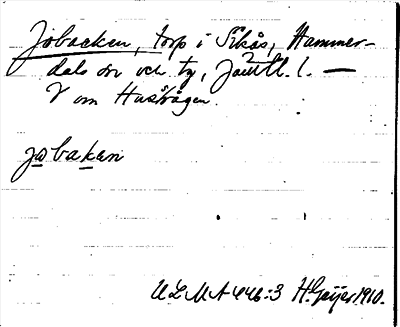 Jobacken, torp i Sikås, Hammer-
dals sn och tg, Jämtl. l. —
V om Husvågen.
jobakan
ULMA 446:3 H. Geijer 1910.